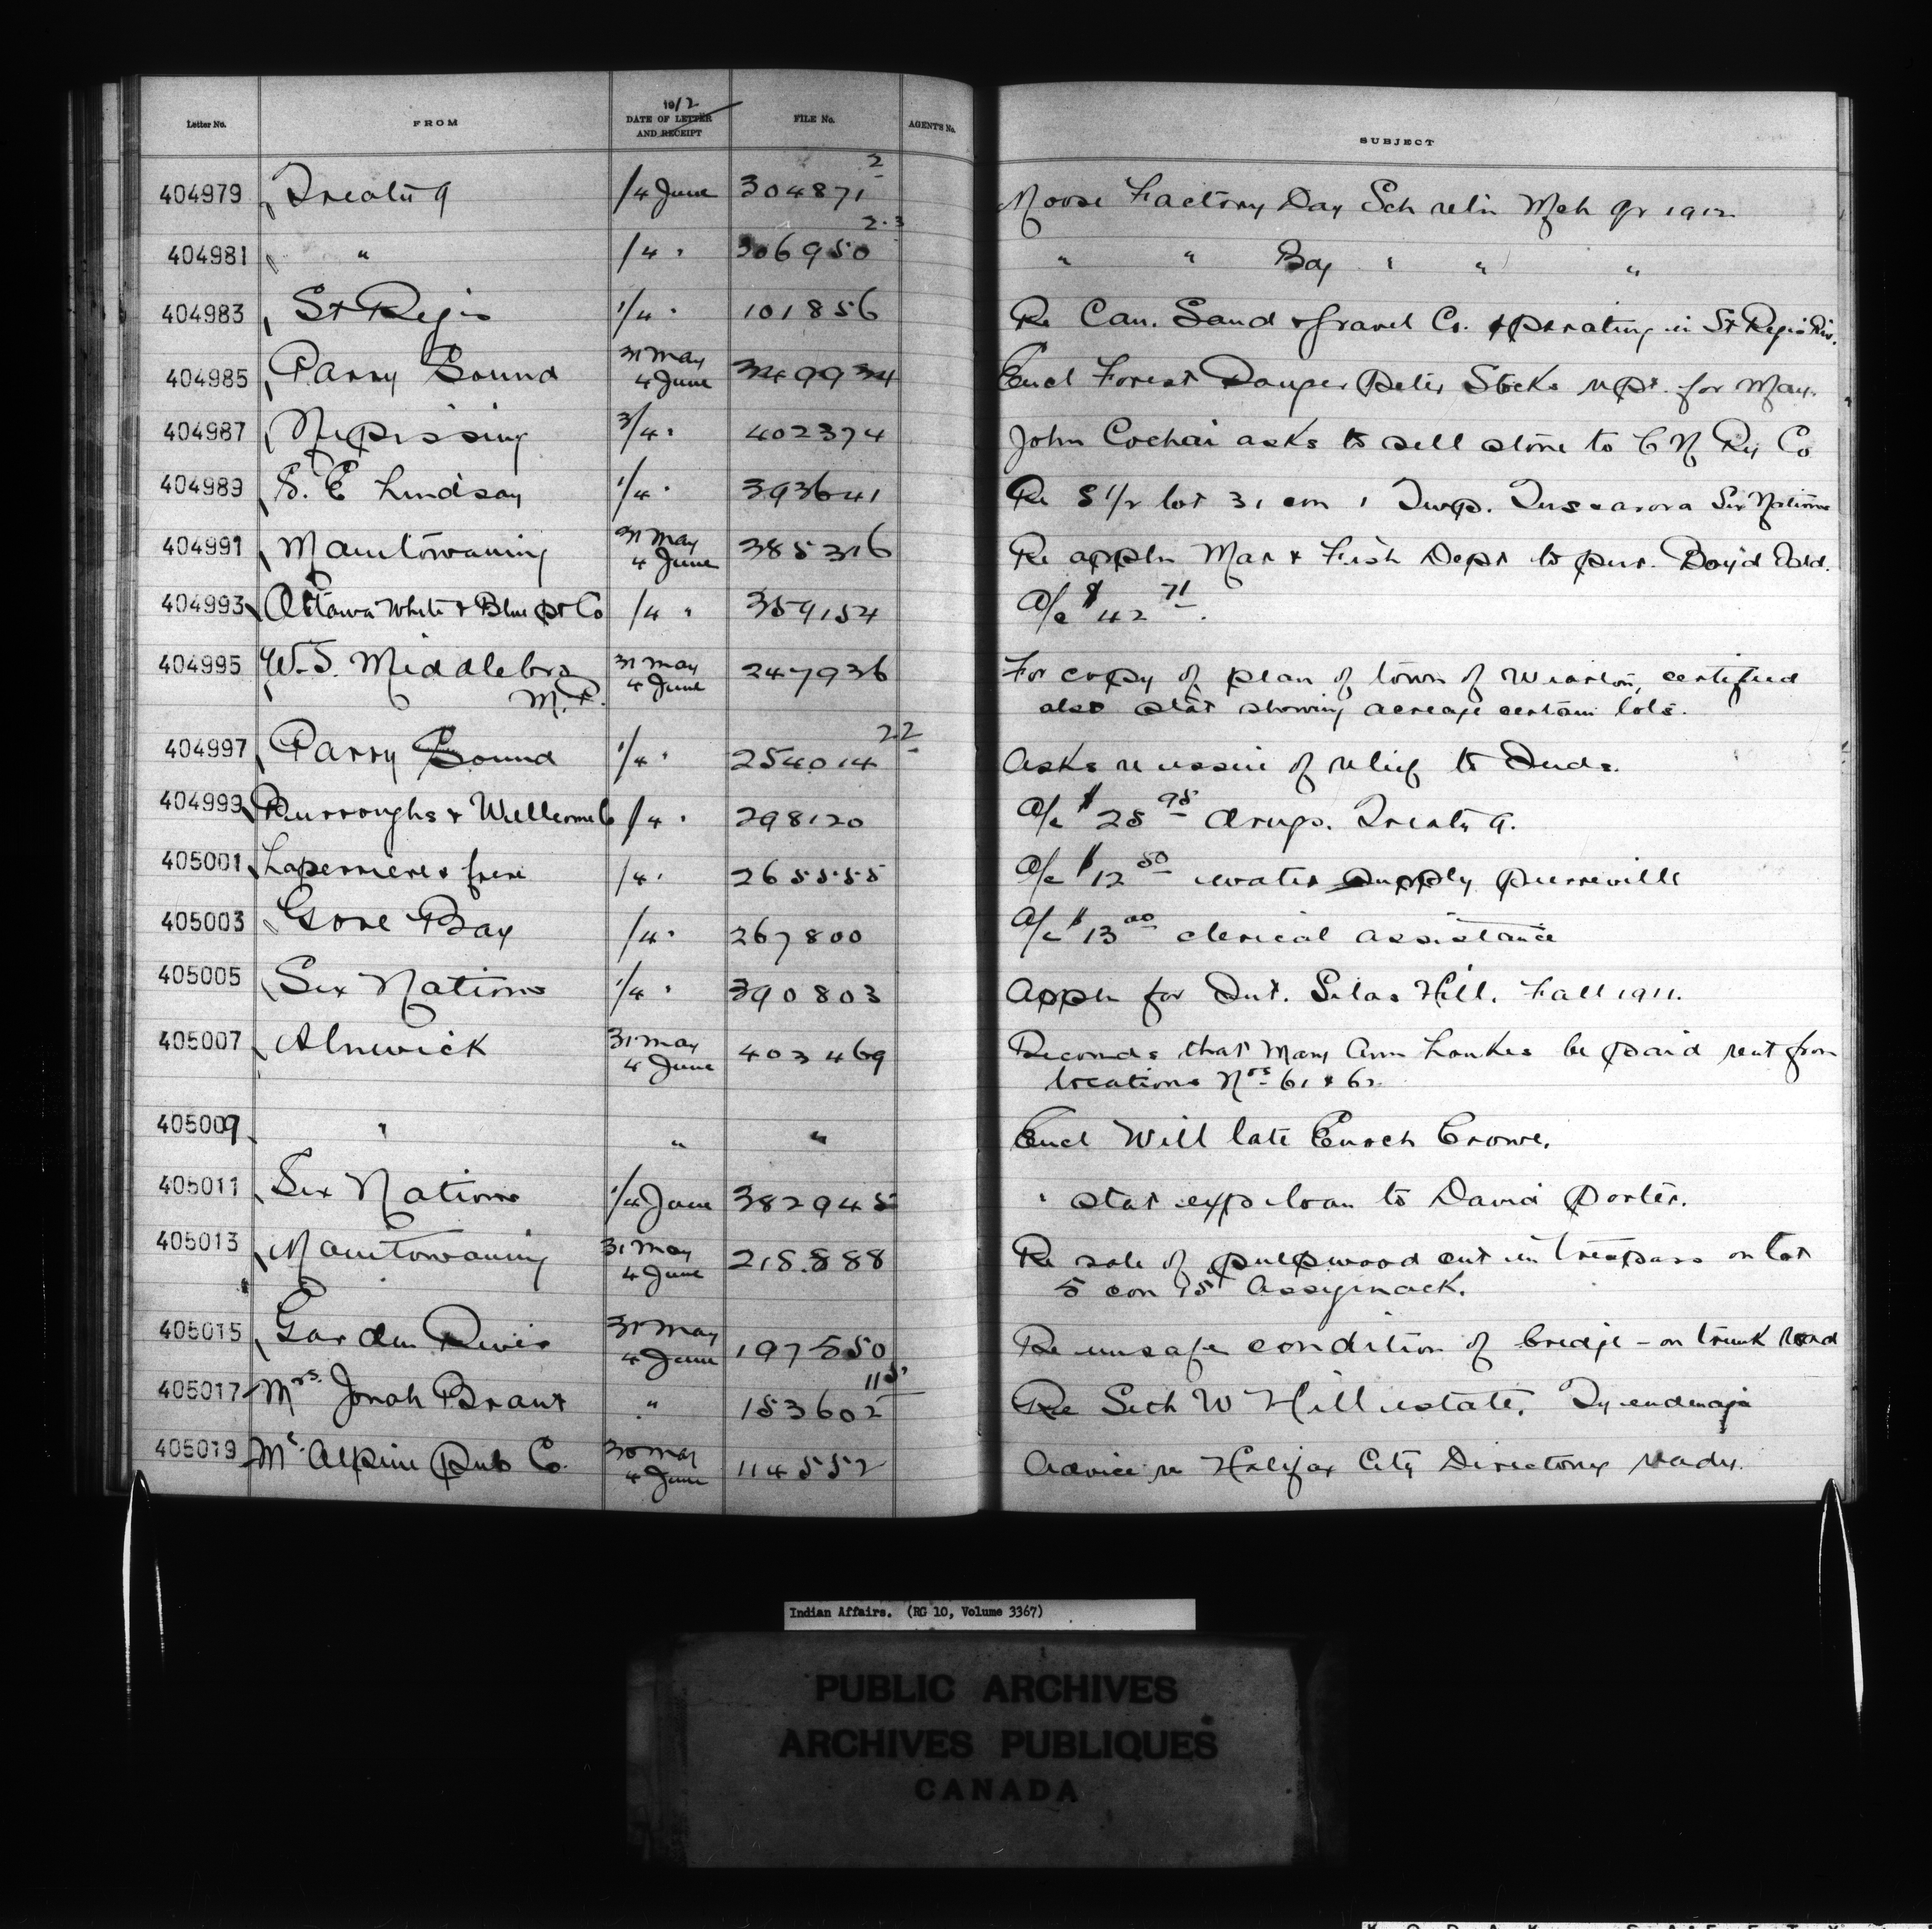 Letter No. FROM 1912 DATE OF LETTER AND RECEIPT FILE No. AGENT'S No. SUBJECT
404979 Treaty 9 /4 June 304871 2 Moose Factory Day Sch retn Mch qr 1912
404981 " /4 " 306950 2.3 " " Boy " " "
404983 St Regis 1/4 " 101856 Re Can. Sand & Gravel Co. operating in St Regis Riv.
404985 Parry Sound 31 May 4 June 349934 Encl Forest Ranger Peter Stocks rept. for May.
404987 Nipissing 3/4 " 402374 John Cochai asks to sell stone to C N Ry Co
404989 S. E Lindsay 1/4 " 393641 Re S 1/2 lot 31 con 1 Twp. Tuscarora Six Nations
404991 Manitowaning 31 May 4 June 385316 Re appln Mar & Fish Dept to pur. Boyd Isld.
404993 Ottawa White & Blue pt Co /4 " 359154 A/c $42 71.
404995 W. S. Middlebro M.P. 31 May 4 June 247936 For copy of plan of town of Wiarton, certified
also stat showing acreage certain lots.
404997 Parry Sound 1/4 " 254014 22 Asks re issue of relief to Inds.
404999 Burroughs & Wellcome Co /4 " 298120 A/c $28 98 drugs. Treaty 9.
405001 Laperriere & frere /4 " 265555 A/c $12 50 water supply Pierreville
405003 Gore Bay /4 " 267800 A/c $13 00 clerical assistance
405005 Six Nations 1/4 " 390803 Appln for Int. Silas Hill. Fall 1911.
405007 Alnwick 31 May 4 June 403469 Recomds that Mary Ann Loukes be paid rent from
locations Nos 61 & 62
405009 " " " Encl Will late Enoch Crowe.
405011 Six Nations 1/4 June 382945 " stat exp loan to David Porter.
405013 Manitowaning 31 May 4 June 218888 Re sale of pulpwood cut in trespass on lot
5 con 15 Assiginack.
405015 Garden River 31 May 4 June 197550 Re unsafe condition of bridge - on trunk road
405017 Mrs. Jonah Brant " 153602 115 Re Seth W Hill estate, Tyendinaga
405019 McAlpine Pub Co. 30 May 4 June 114552 Advice re Halifax City Directory ready.
Indian Affairs. (RG 10, Volume 3367)
PUBLIC ARCHIVES
ARCHIVES PUBLIQUES
CANADA